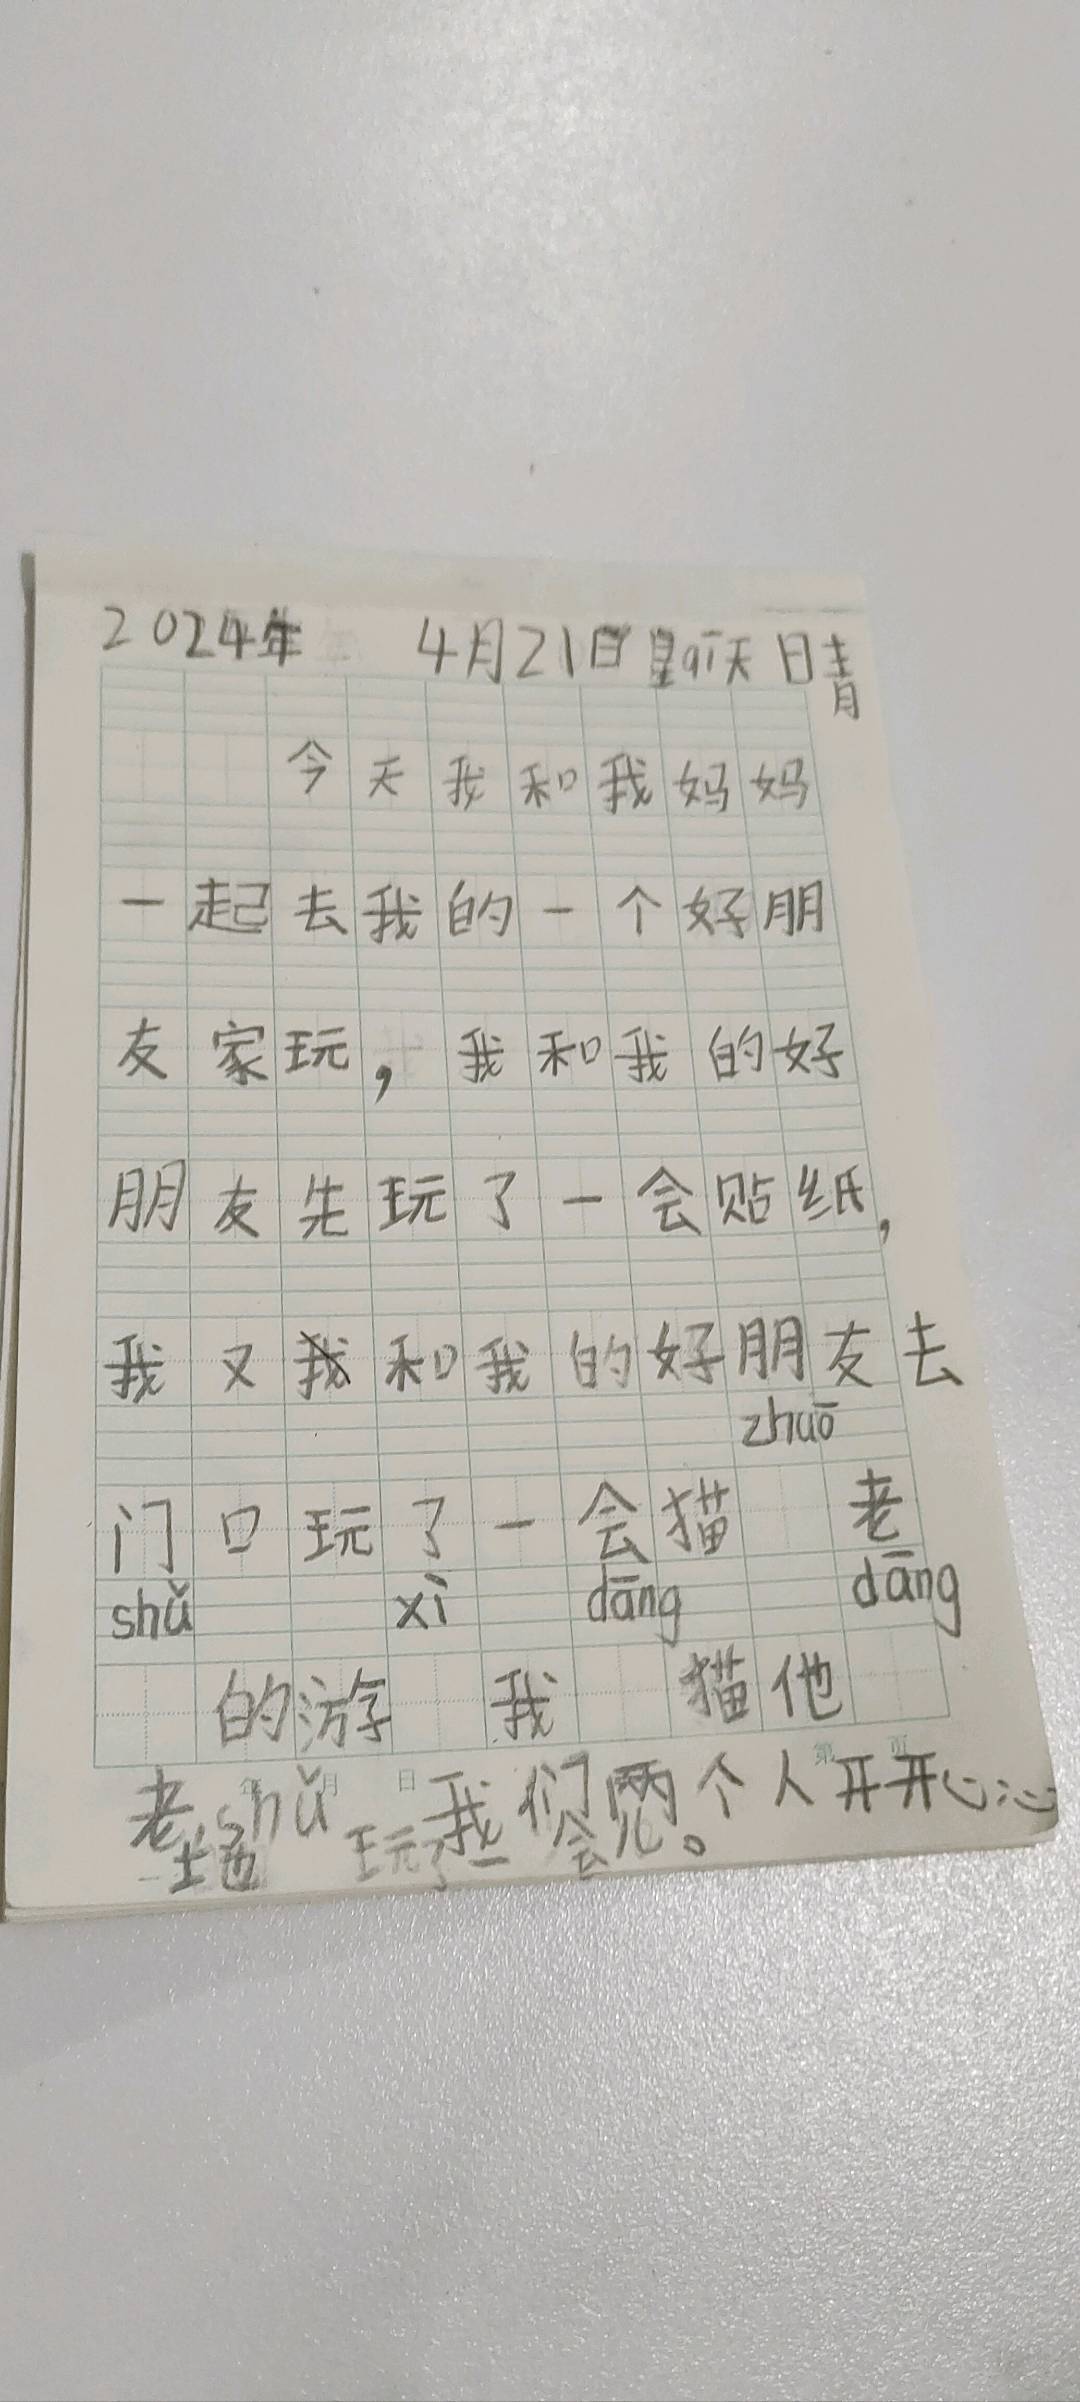 2024年 4月21日星qī天 晴
今天我和我妈妈
一起去我的一个好朋
友家玩，我和我的好
朋友先玩了一会贴纸，
我又我和我的好朋友去
zhuō
门口玩了一会猫 老
shǔ xì dāng dāng
的游 我 猫他
年 月 日 第 页
老shǔ我们两个人开开心心
地玩了一会儿。